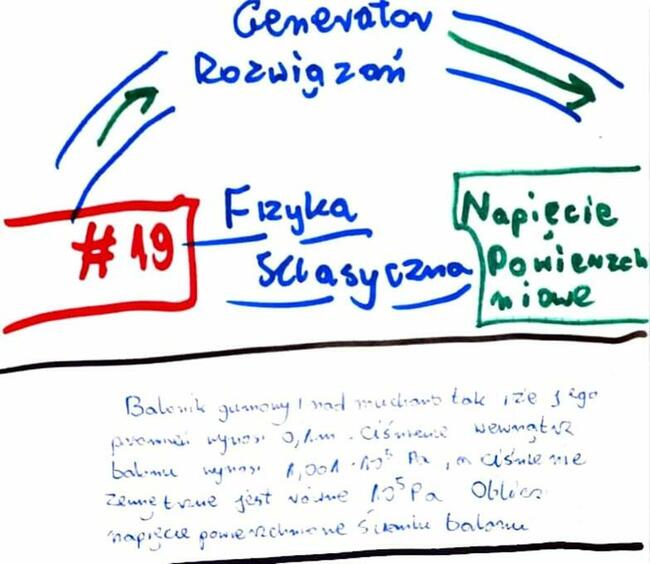 Generator
Rozwiązań
#19
Fizyka
Klasyczna
Napięcie
Powierzch
niowe
Balonik gumowy nadmuchano tak iże jego
promień wynosi 0,1m. Ciśnienie wewnątrz
balonu wynosi 1,001·10⁵ Pa, a ciśnienie
zewnętrzne jest równe 10⁵Pa Oblicz
napięcie powierzchniowe ścianki balonu